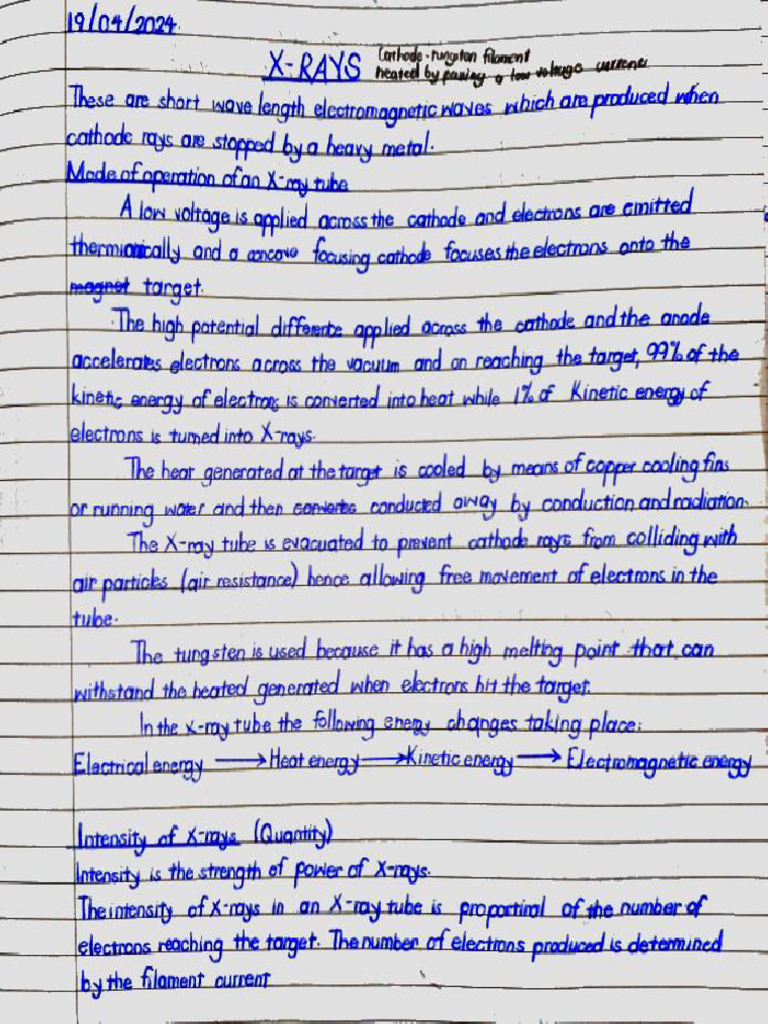 19/04/2024.
X-RAYS Cathode-tungston filament
heated by passing a low voltage current
These are short wave length electromagnetic waves which are produced when
cathode rays are stopped by a heavy metal.
Mode of operation of an X-ray tube
A low voltage is applied across the cathode and electrons are emitted
thermionically and a concave focusing cathode focuses the electrons onto the
magnet target.
The high potential difference applied across the cathode and the anode
accelerates electrons across the vacuum and on reaching the target, 99% of the
kinetic energy of electrons is converted into heat while 1% of Kinetic energy of
electrons is turned into X-rays.
The heat generated at the target is cooled by means of copper cooling fins
or running water and then converte conducted away by conduction and radiation.
The X-ray tube is evacuated to prevent cathode rays from colliding with
air particles (air resistance) hence allowing free movement of electrons in the
tube.
The tungsten is used because it has a high melting point that can
withstand the heated generated when electrons hit the target.
In the x-ray tube the following energy changes taking place:
Electrical energy → Heat energy → Kinetic energy → Electromagnetic energy
Intensity of X-rays (Quantity)
Intensity is the strength of power of X-rays.
The intensity of X-rays in an X-ray tube is proportiral of the number of
electrons reaching the target. The number of electrons produced is determined
by the filament current